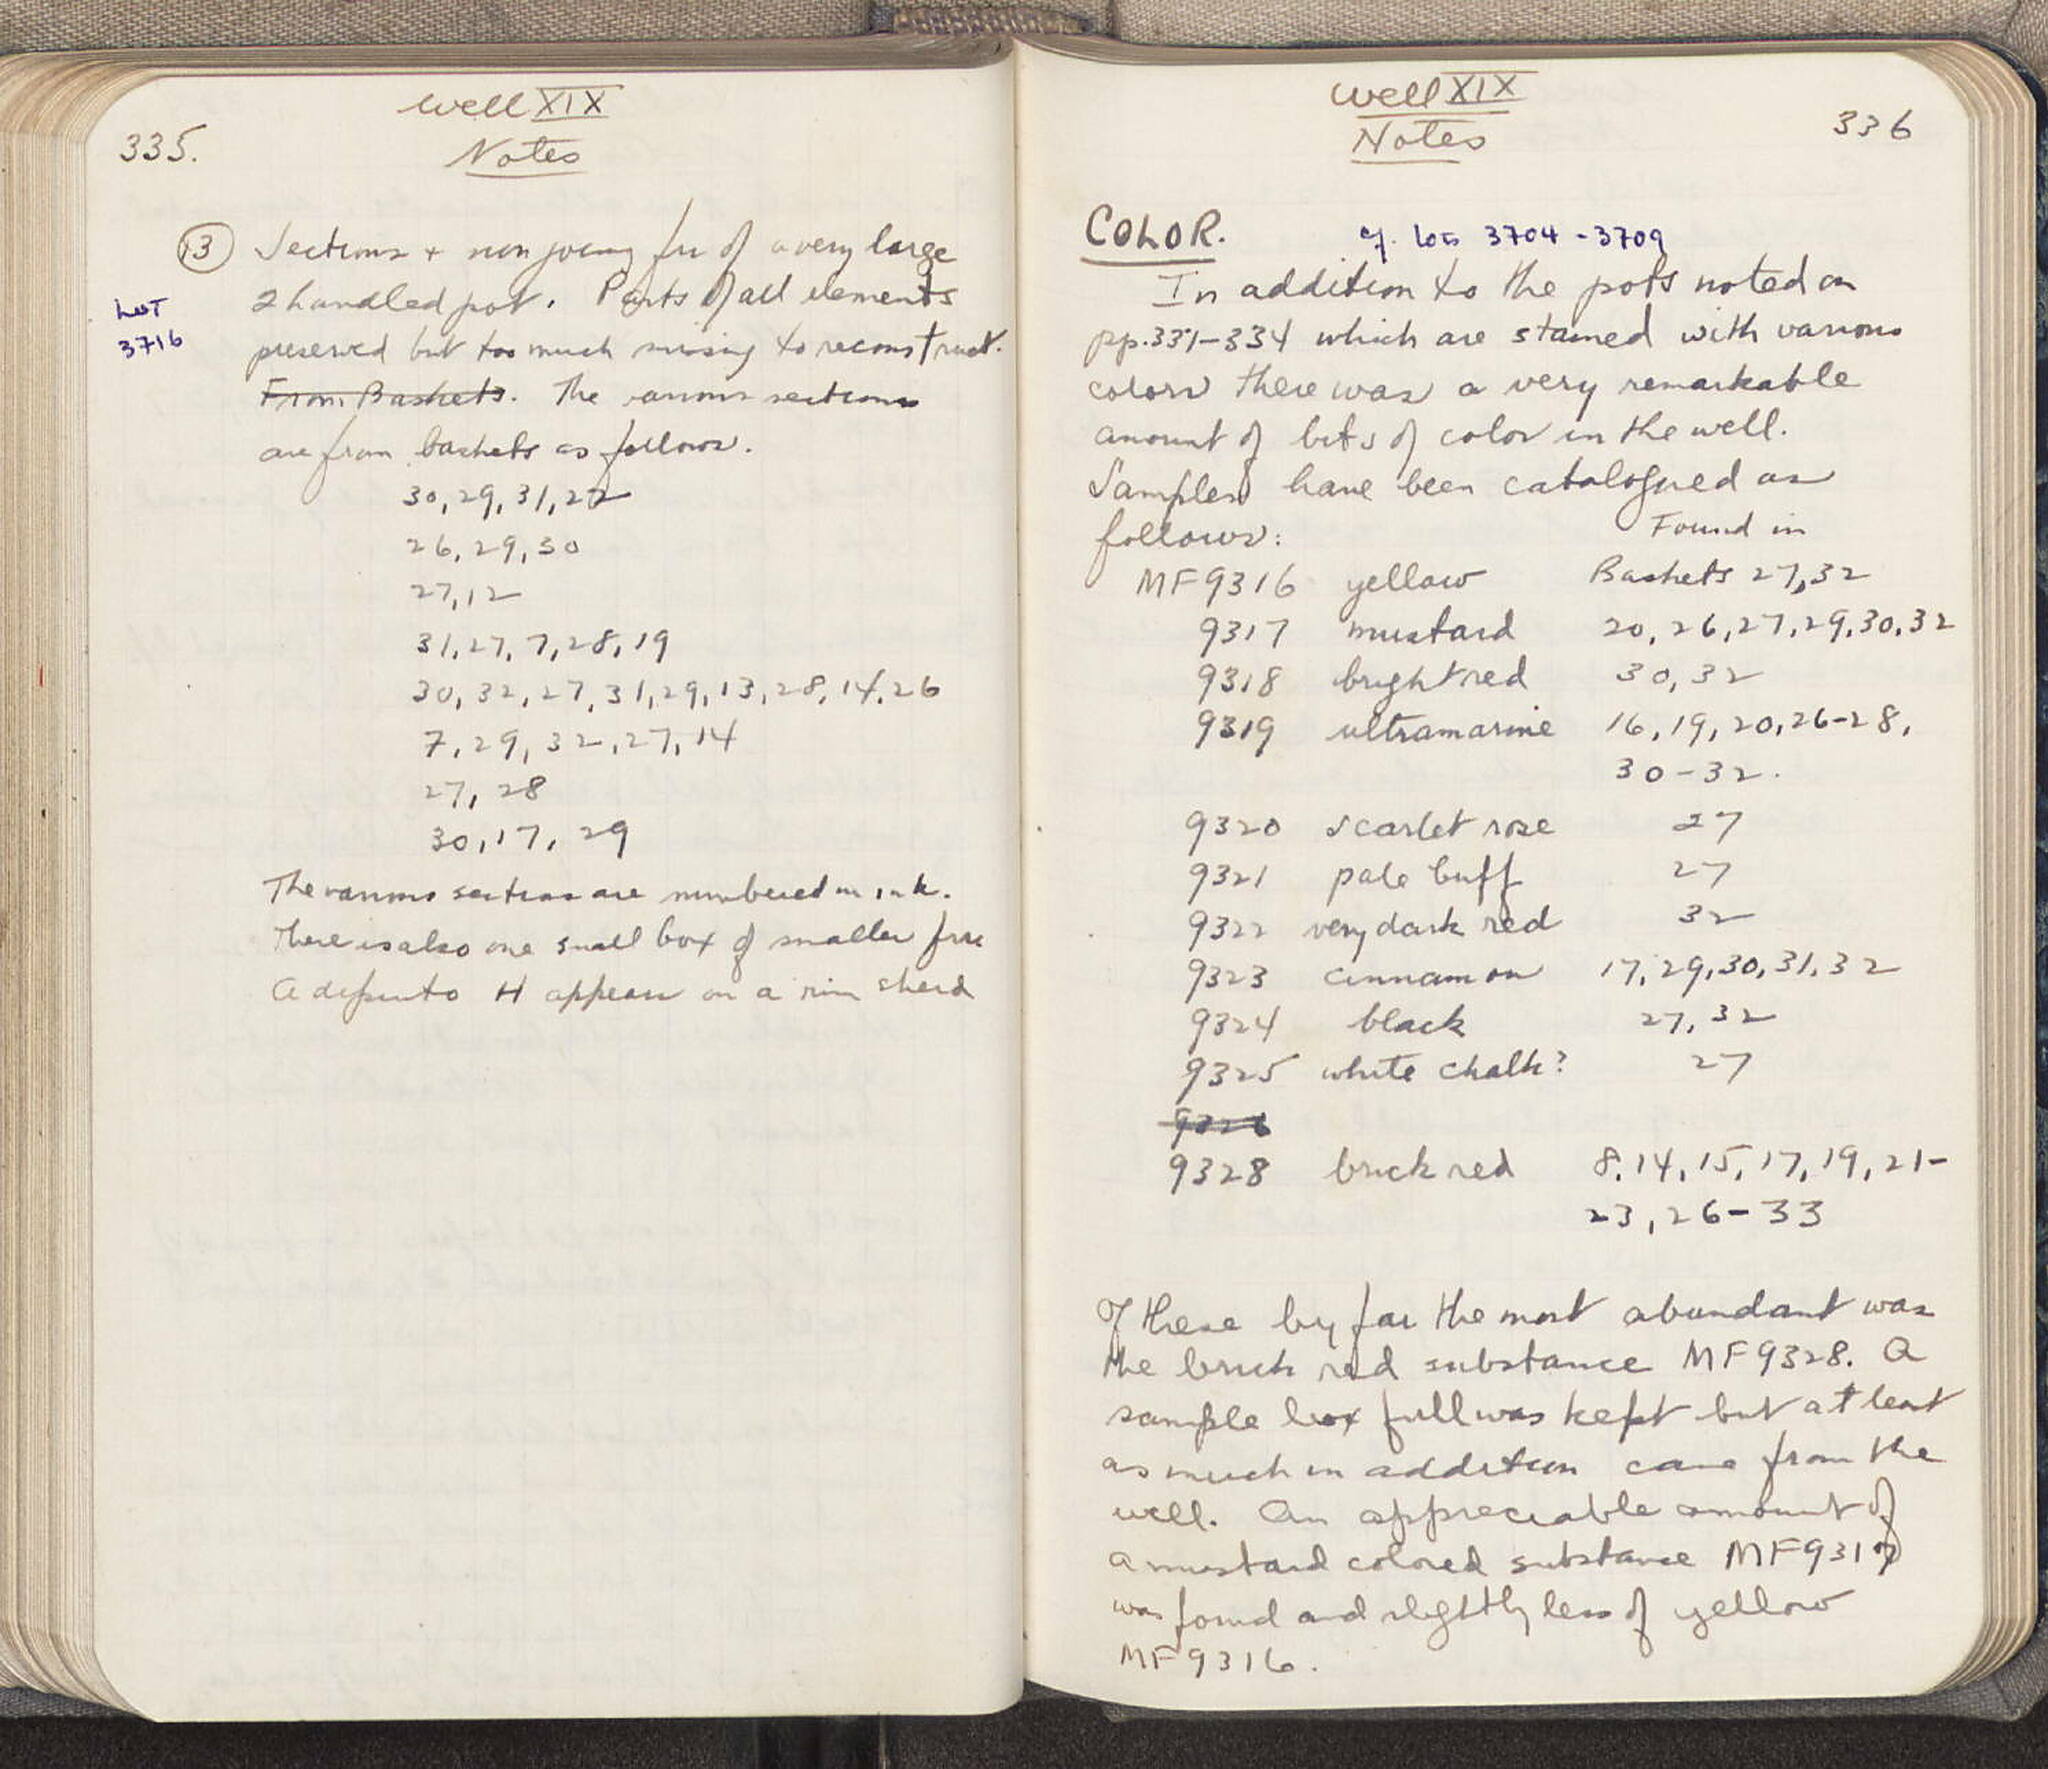 335.
Well XIX
Notes
13 Sections + non joining frr of a very large
Lot
3716
2 handled pot. Parts of all elements
preserved but too much missing to reconstruct.
From Baskets. The various sections
are from baskets as follows.
30, 29, 31, 22
26, 29, 30
27, 12
31, 27, 7, 28, 19
30, 32, 27, 31, 29, 13, 28, 14, 26
7, 29, 32, 27, 14
27, 28
30, 17, 29
The various sections are numbered in ink.
There is also one small box of smaller frr
A dipinto H appears on a rim sherd
Well XIX
Notes
336
COLOR.
cf. lots 3704-3709
In addition to the pots noted on
pp. 331-334 which are stained with various
colors there was a very remarkable
amount of bits of color in the well.
Samples have been catalogued as
follows: Found in
MF 9316 yellow Baskets 27, 32
9317 mustard 20, 26, 27, 29, 30, 32
9318 bright red 30, 32
9319 ultramarine 16, 19, 20, 26-28,
30-32.
9320 scarlet rose 27
9321 pale buff 27
9322 very dark red 32
9323 cinnamon 17, 29, 30, 31, 32
9324 black 27, 32
9325 white chalk? 27
9326
9328 brick red 8, 14, 15, 17, 19, 21-
23, 26-33
Of these by far the most abundant was
the brick red substance MF 9328. A
sample box full was kept but at least
as much in addition came from the
well. An appreciable amount of
a mustard colored substance MF 9317
was found and slightly less of yellow
MF 9316.